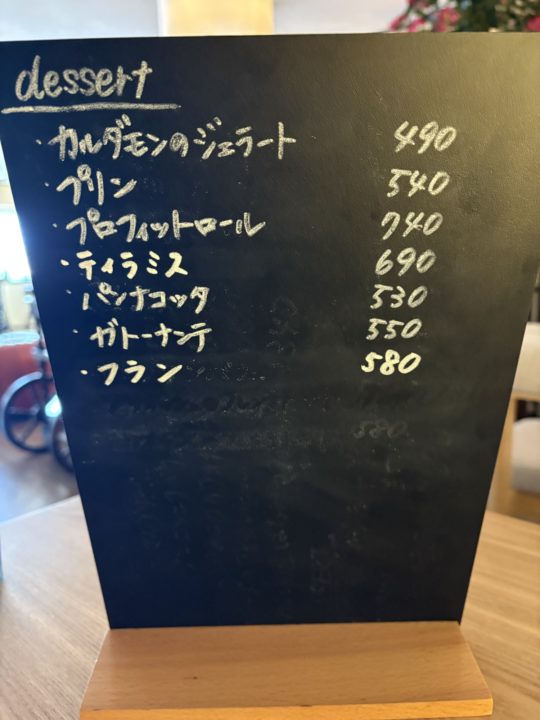 dessert
・カルダモンのジェラート 490
・プリン 540
・プロフィットロール 740
・ティラミス 690
・パンナコッタ 530
・ガトーナンテ 550
・フラン 580
580